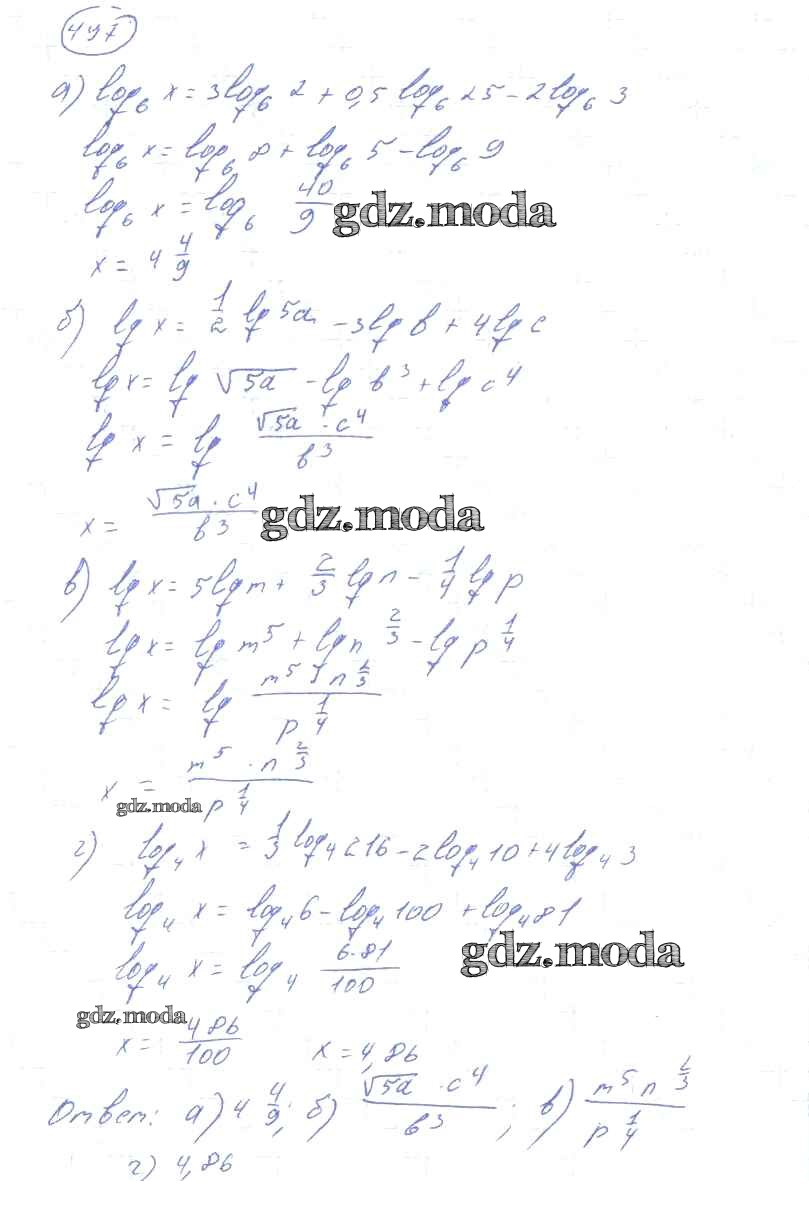 497
а) log₆ x = 3log₆ 2 + 0,5 log₆ 25 - 2log₆ 3
log₆ x = log₆ 8 + log₆ 5 - log₆ 9
log₆ x = log₆ 40/9
gdz.moda
x = 4 4/9
б) lg x = 1/2 lg 5a - 3lg b + 4lg c
lg x = lg √5a - lg b³ + lg c⁴
lg x = lg √5a · c⁴ / b³
x = √5a · c⁴ / b³
gdz.moda
в) lg x = 5lg m + 2/3 lg n - 1/4 lg p
lg x = lg m⁵ + lg n^2/3 - lg p^1/4
lg x = lg m⁵ · n^2/3 / p^1/4
x = m⁵ · n^2/3 / p^1/4
gdz.moda
г) log₄ x = 1/3 log₄ 216 - 2log₄ 10 + 4log₄ 3
log₄ x = log₄ 6 - log₄ 100 + log₄ 81
log₄ x = log₄ 6·81/100
gdz.moda
gdz.moda
x = 486/100 x = 4,86
Ответ: а) 4 4/9; б) √5a · c⁴ / b³; в) m⁵ n^2/3 / p^1/4
г) 4,86